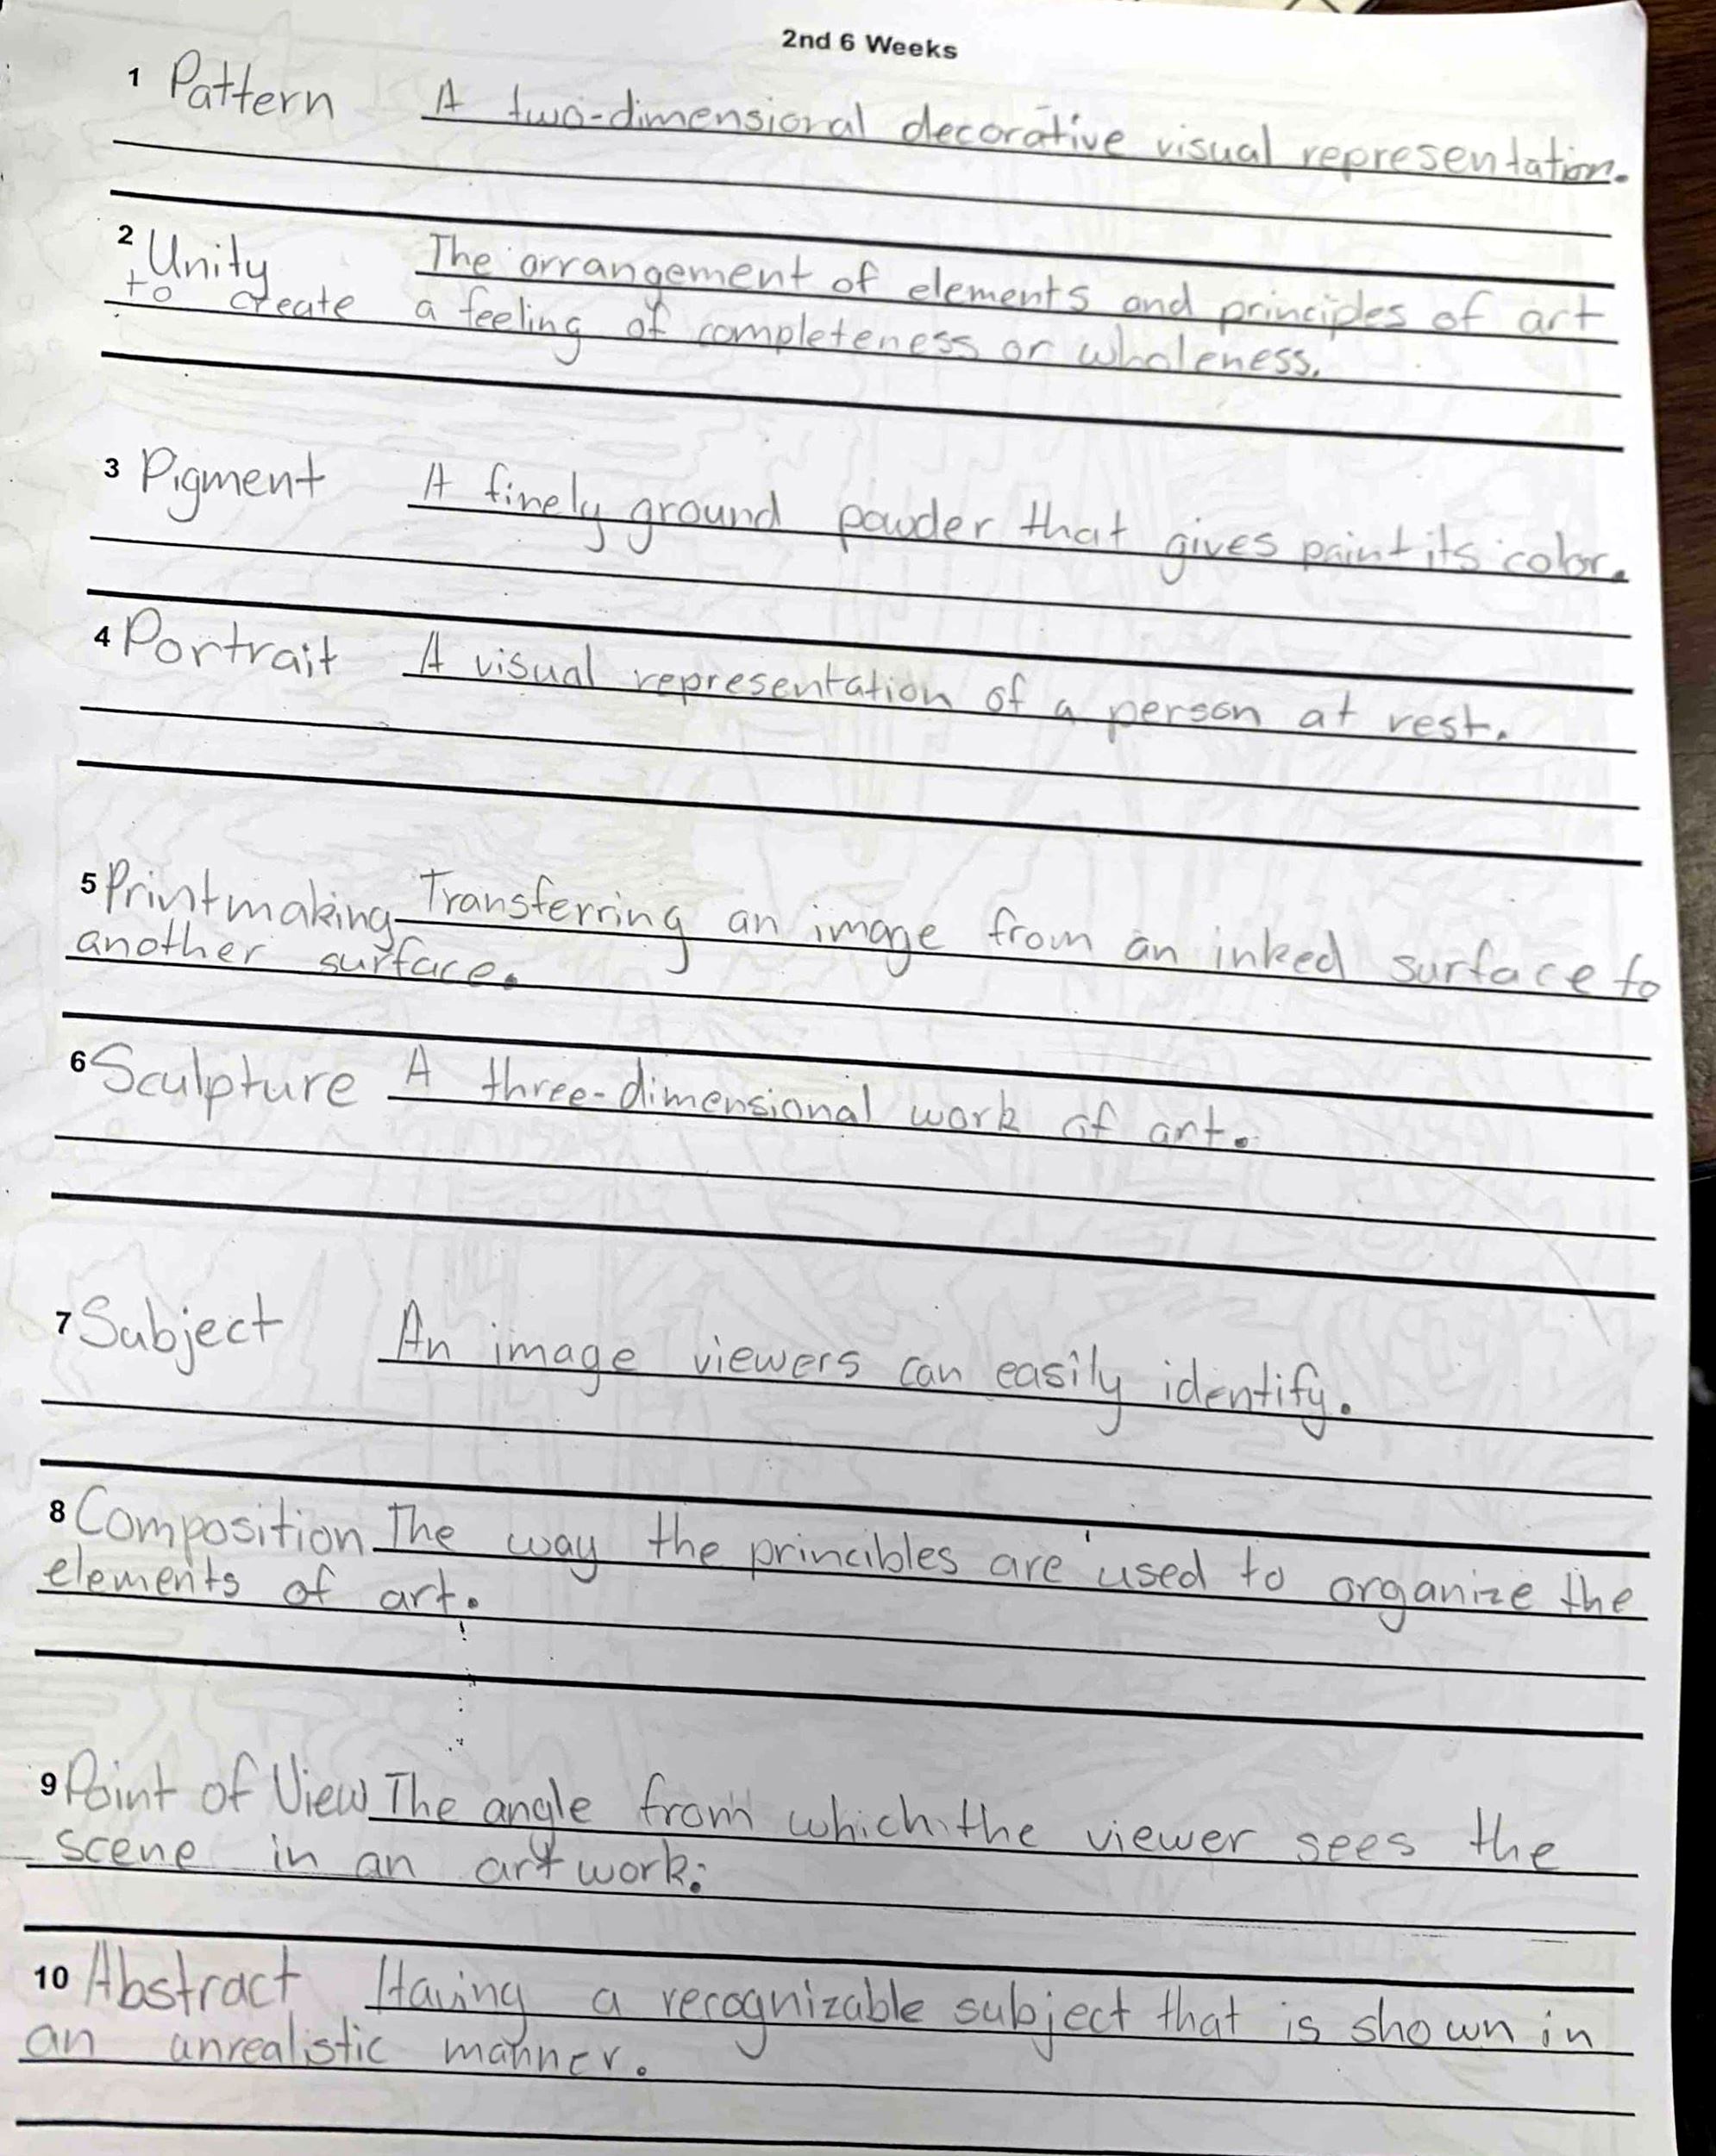 2nd 6 Weeks
1 Pattern A two-dimensional decorative visual representation.
2 Unity The arrangement of elements and principles of art
to create a feeling of completeness or wholeness.
3 Pigment A finely ground powder that gives paint its color.
4 Portrait A visual representation of a person at rest.
5 Printmaking Transferring an image from an inked surface to
another surface.
6 Sculpture A three-dimensional work of art.
7 Subject An image viewers can easily identify.
8 Composition The way the princibles are used to organize the
elements of art.
9 Point of View The angle from which the viewer sees the
scene in an artwork.
10 Abstract Having a recognizable subject that is shown in
an unrealistic manner.